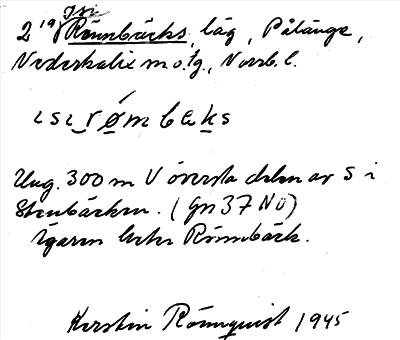 Isi
2 19) Rönnbäcks, läg, Pålänge,
Nederkalix m o. tg., Norrb. l.
ɩsɩ rømbɛks
Ung. 300 m V översta delen av S i
Stenbäcken. (Gn 37 NO)
Ägaren heter Rönnbäck.
Kerstin Rönnquist 1945